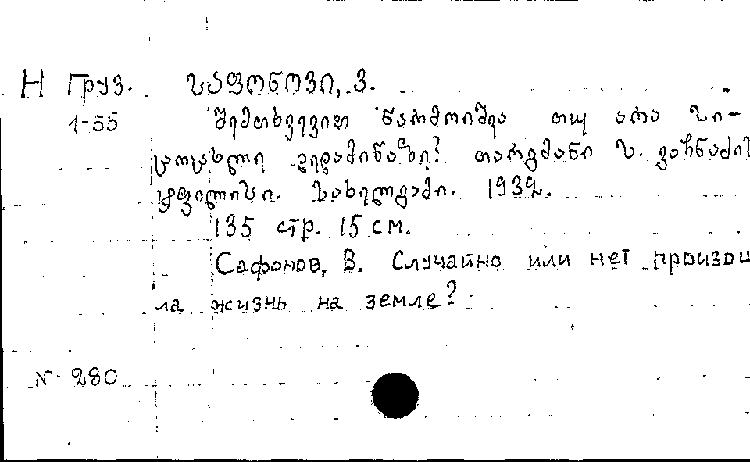 Н Груз. საფონოვი, ვ.
1-55 შემთხვევით წარმოიშვა თუ არა სი-
ცოცხლე დედამიწაზე? თარგმანი ს. ვაჩნაძის
ტფილისი. სახელგამი. 1932.
135 стр. 15 см.
Сафонов, В. Случайно или нет произош
ла жизнь на земле?
№ 280